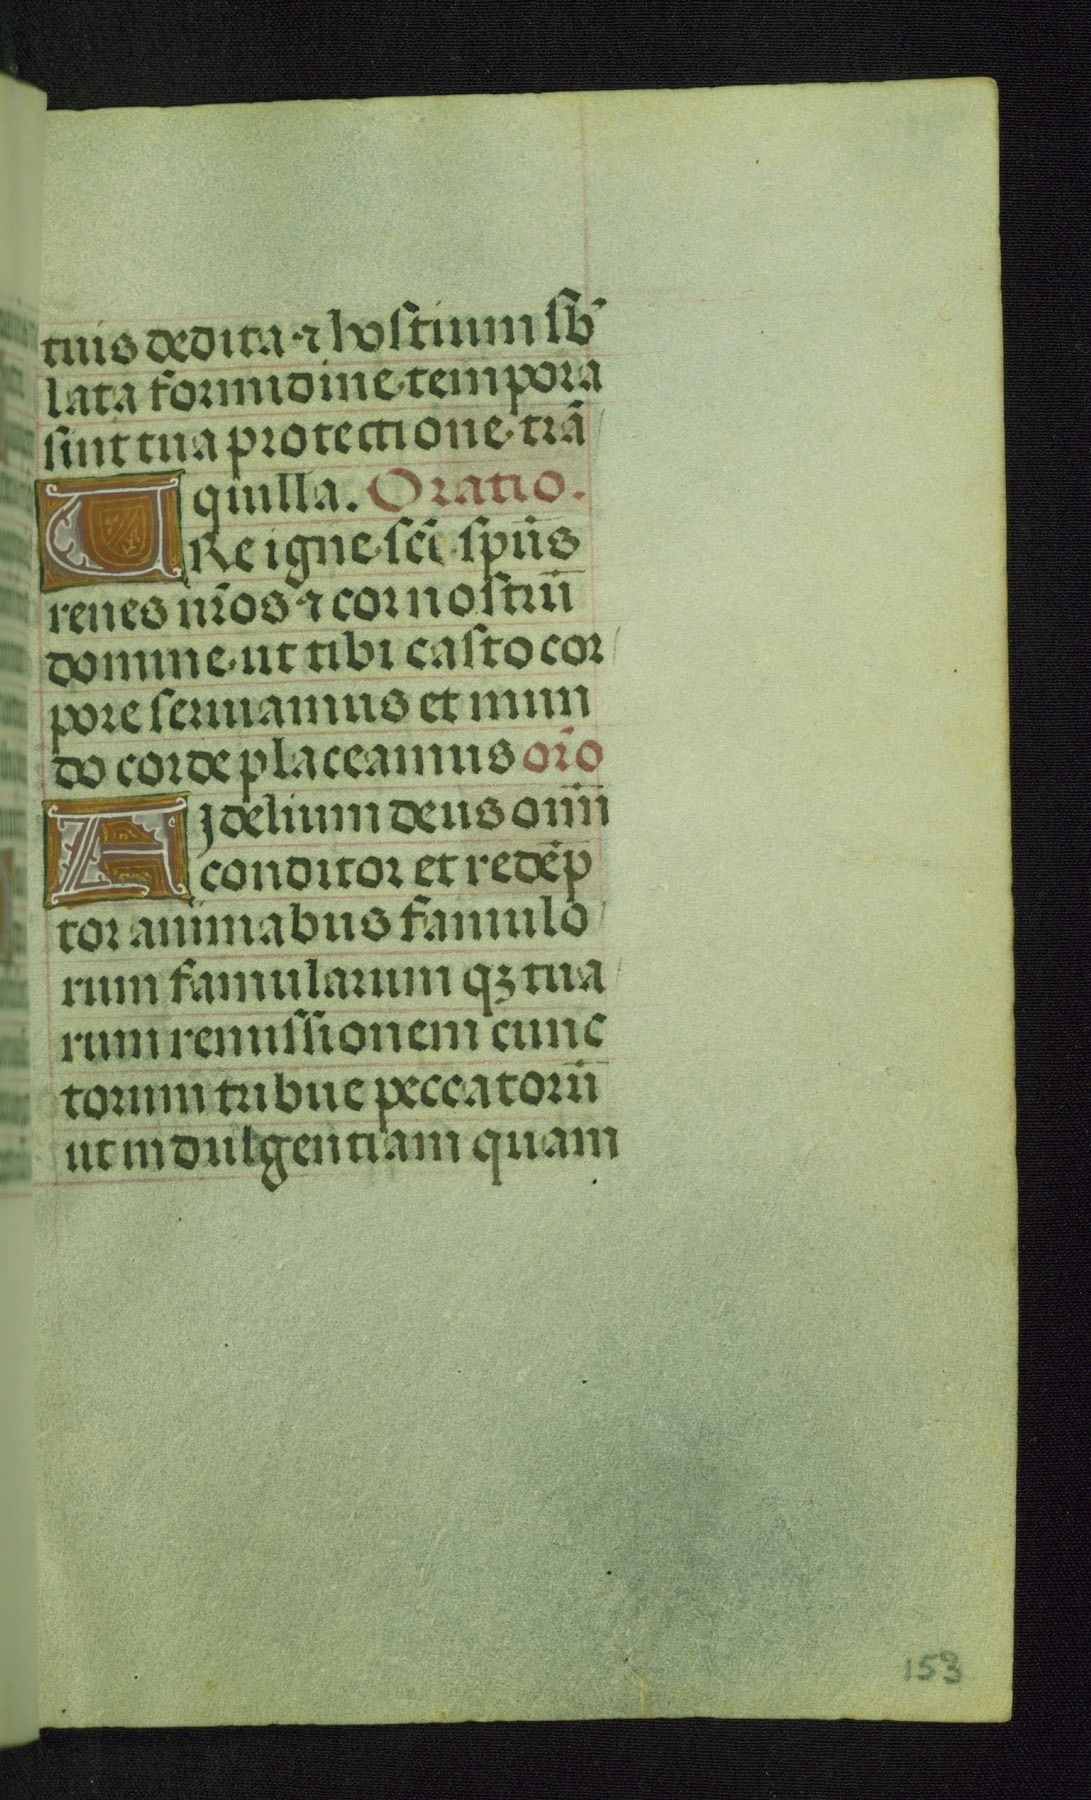 tuis dedita ⁊ hostium sb̄
lata formidine tempora
sint tua protectione trã
quilla. Oratio.
URe igne sc̄i sp̄us
renes nr̄os ⁊ cor nostrū
domine ut tibi casto cor
pore seruiamus et mun
do corde placeamus or̄o
FIdelium deus om̄i
conditor et redēp
tor animabus famulo
rum famularum qꝫ tua
rum remissionem cunc
torum tribue peccatorū
ut indulgentiam quam
153